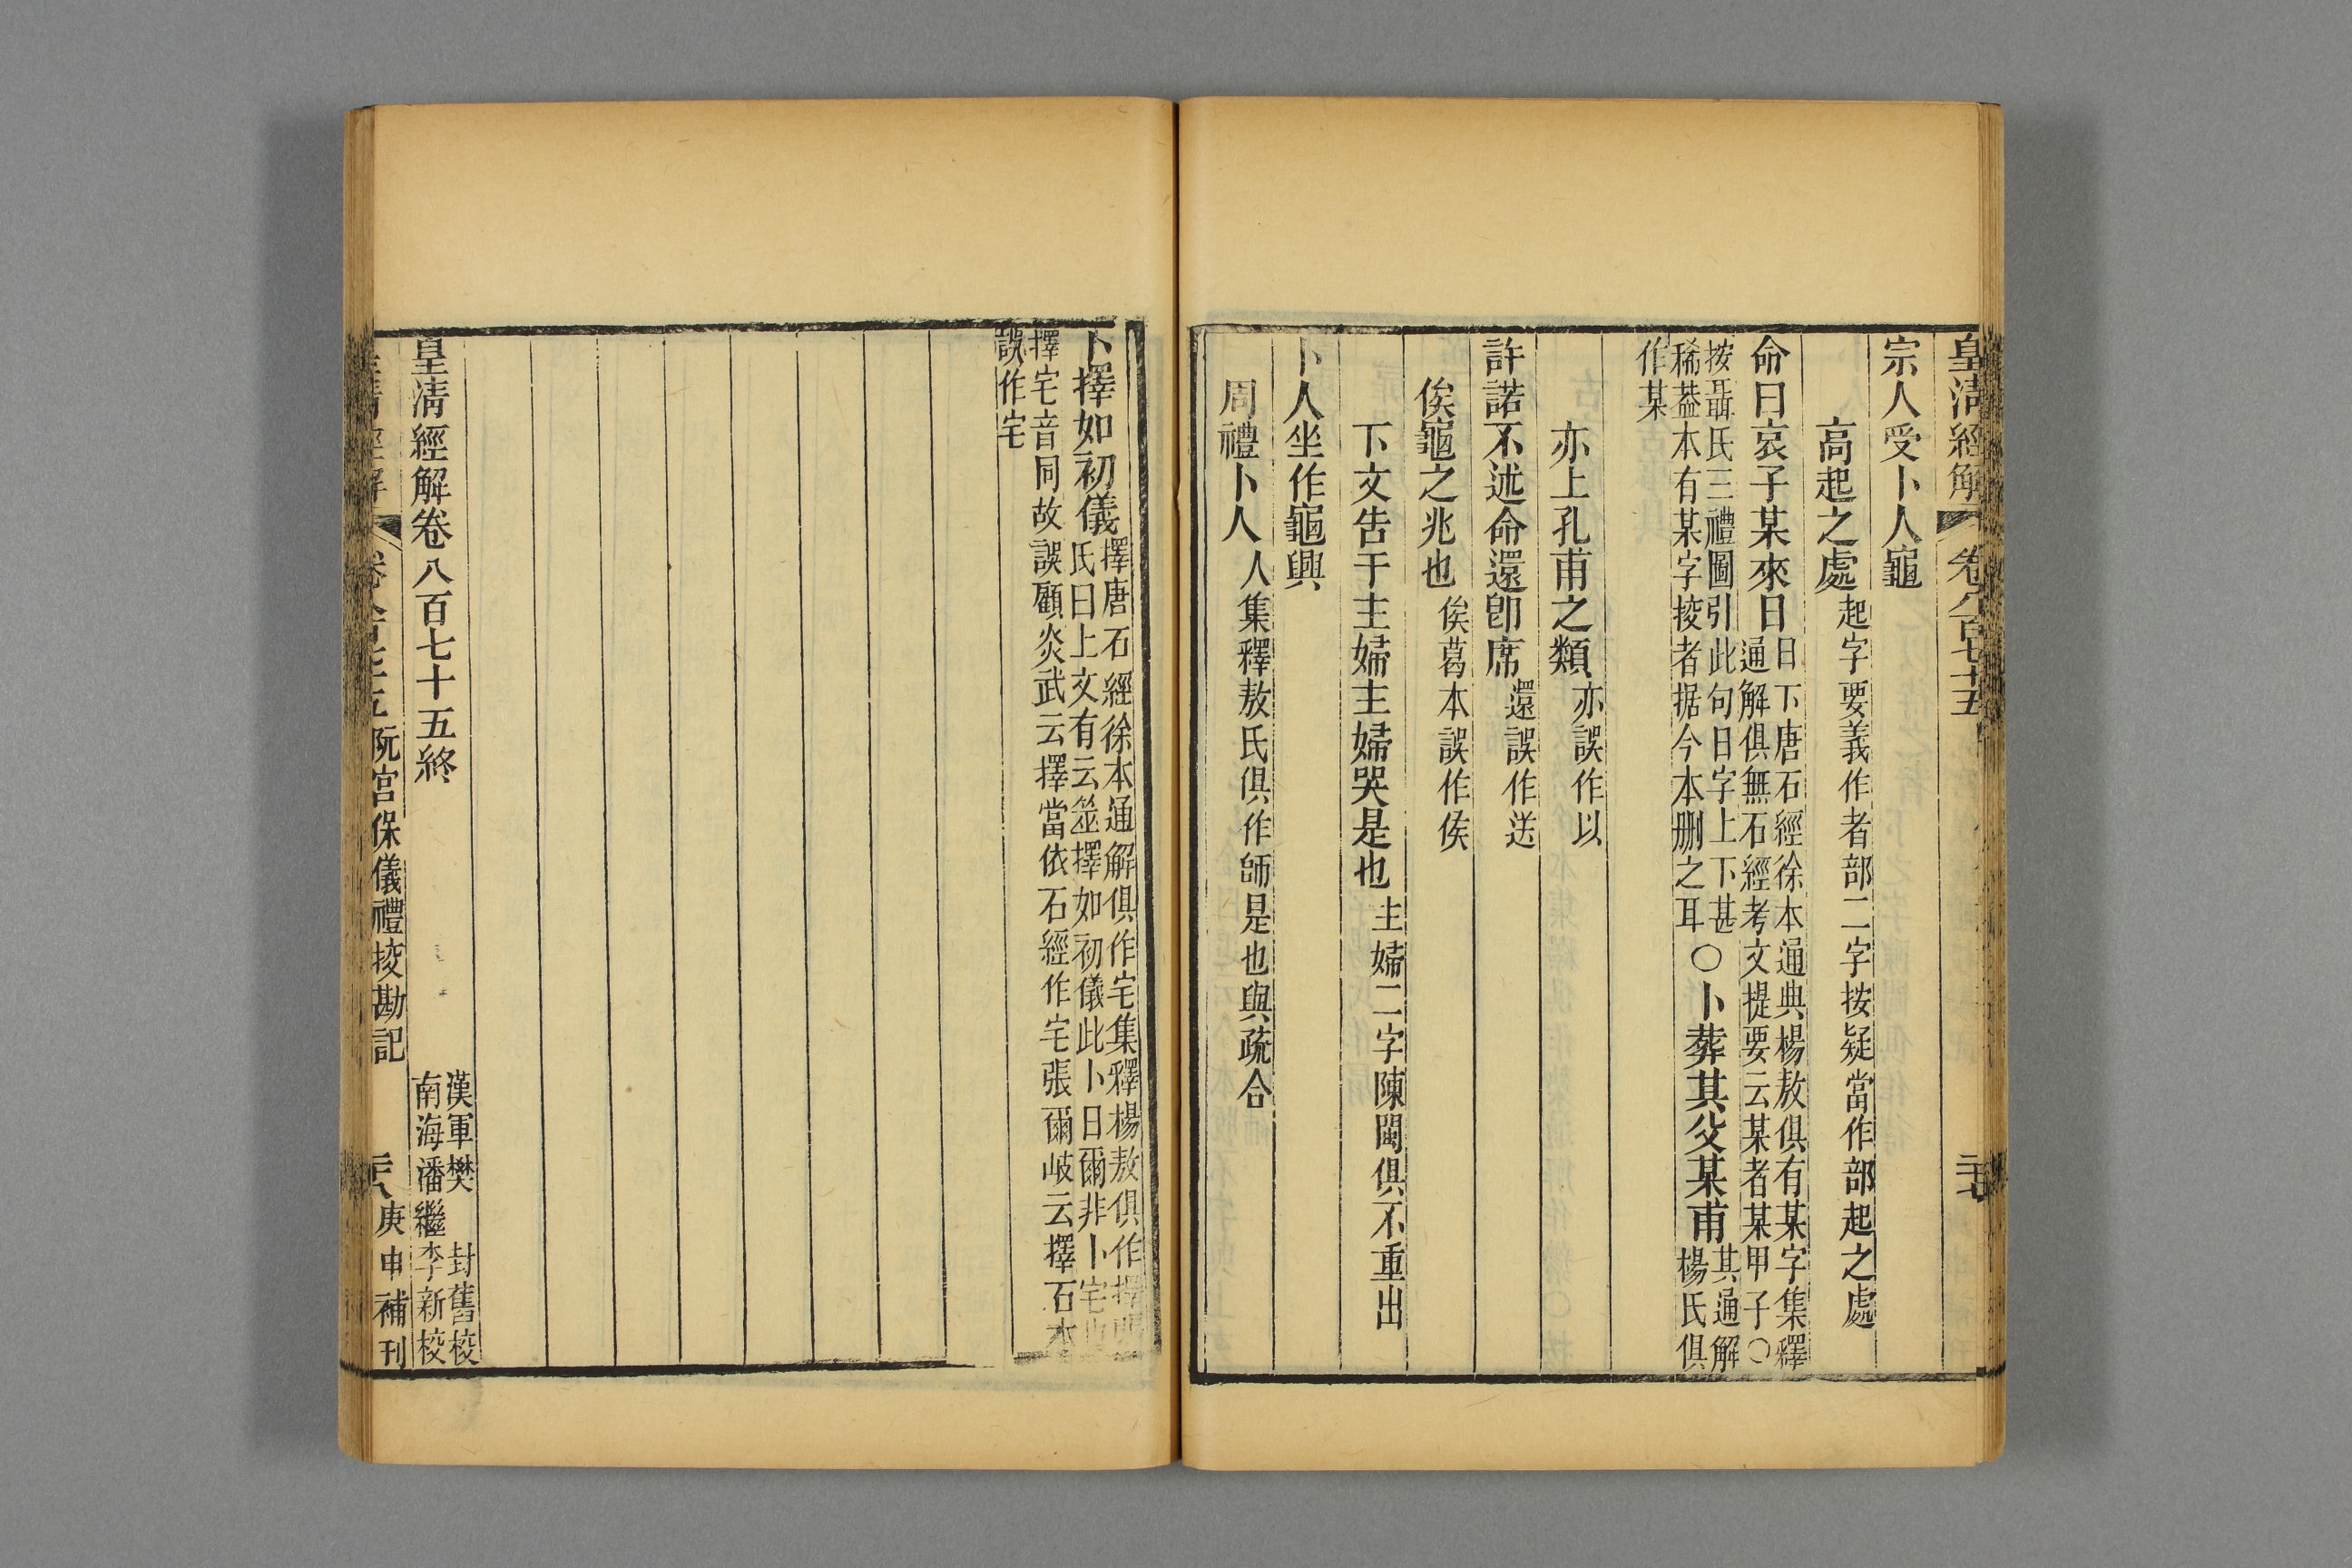 皇清經解 卷八百七十五
宗人受卜人龜
高起之處起字要義作者部二字按疑當作部起之處
命曰哀子某來日日下唐石經徐本通典楊敖俱有某字集釋
通解俱無石經考文提要云某者某甲子〇
按聶氏三禮圖引此句日字上下甚
稀葢本有某字挍者据今本刪之耳〇卜葬其父某甫其通解
楊氏俱
作某
亦上孔甫之類亦誤作以
許諾不述命還卽席還誤作送
俟龜之兆也俟葛本誤作侯
下文告于主婦主婦哭是也主婦二字陳閩俱不重出
卜人坐作龜興
周禮卜人人集釋敖氏俱作師是也與疏合
卜擇如初儀擇唐石經徐本通解俱作宅集釋楊敖俱作擇
氏曰上文有云筮擇如初儀此卜日爾非卜宅也
擇宅音同故誤顧炎武云擇當依石經作宅張爾岐云擇石本
誤作宅
漢軍樊封舊校
皇清經解卷八百七十五終 南海潘繼李新校
皇清經解 卷八百七十五 阮宮保儀禮挍勘記 庚申補刊